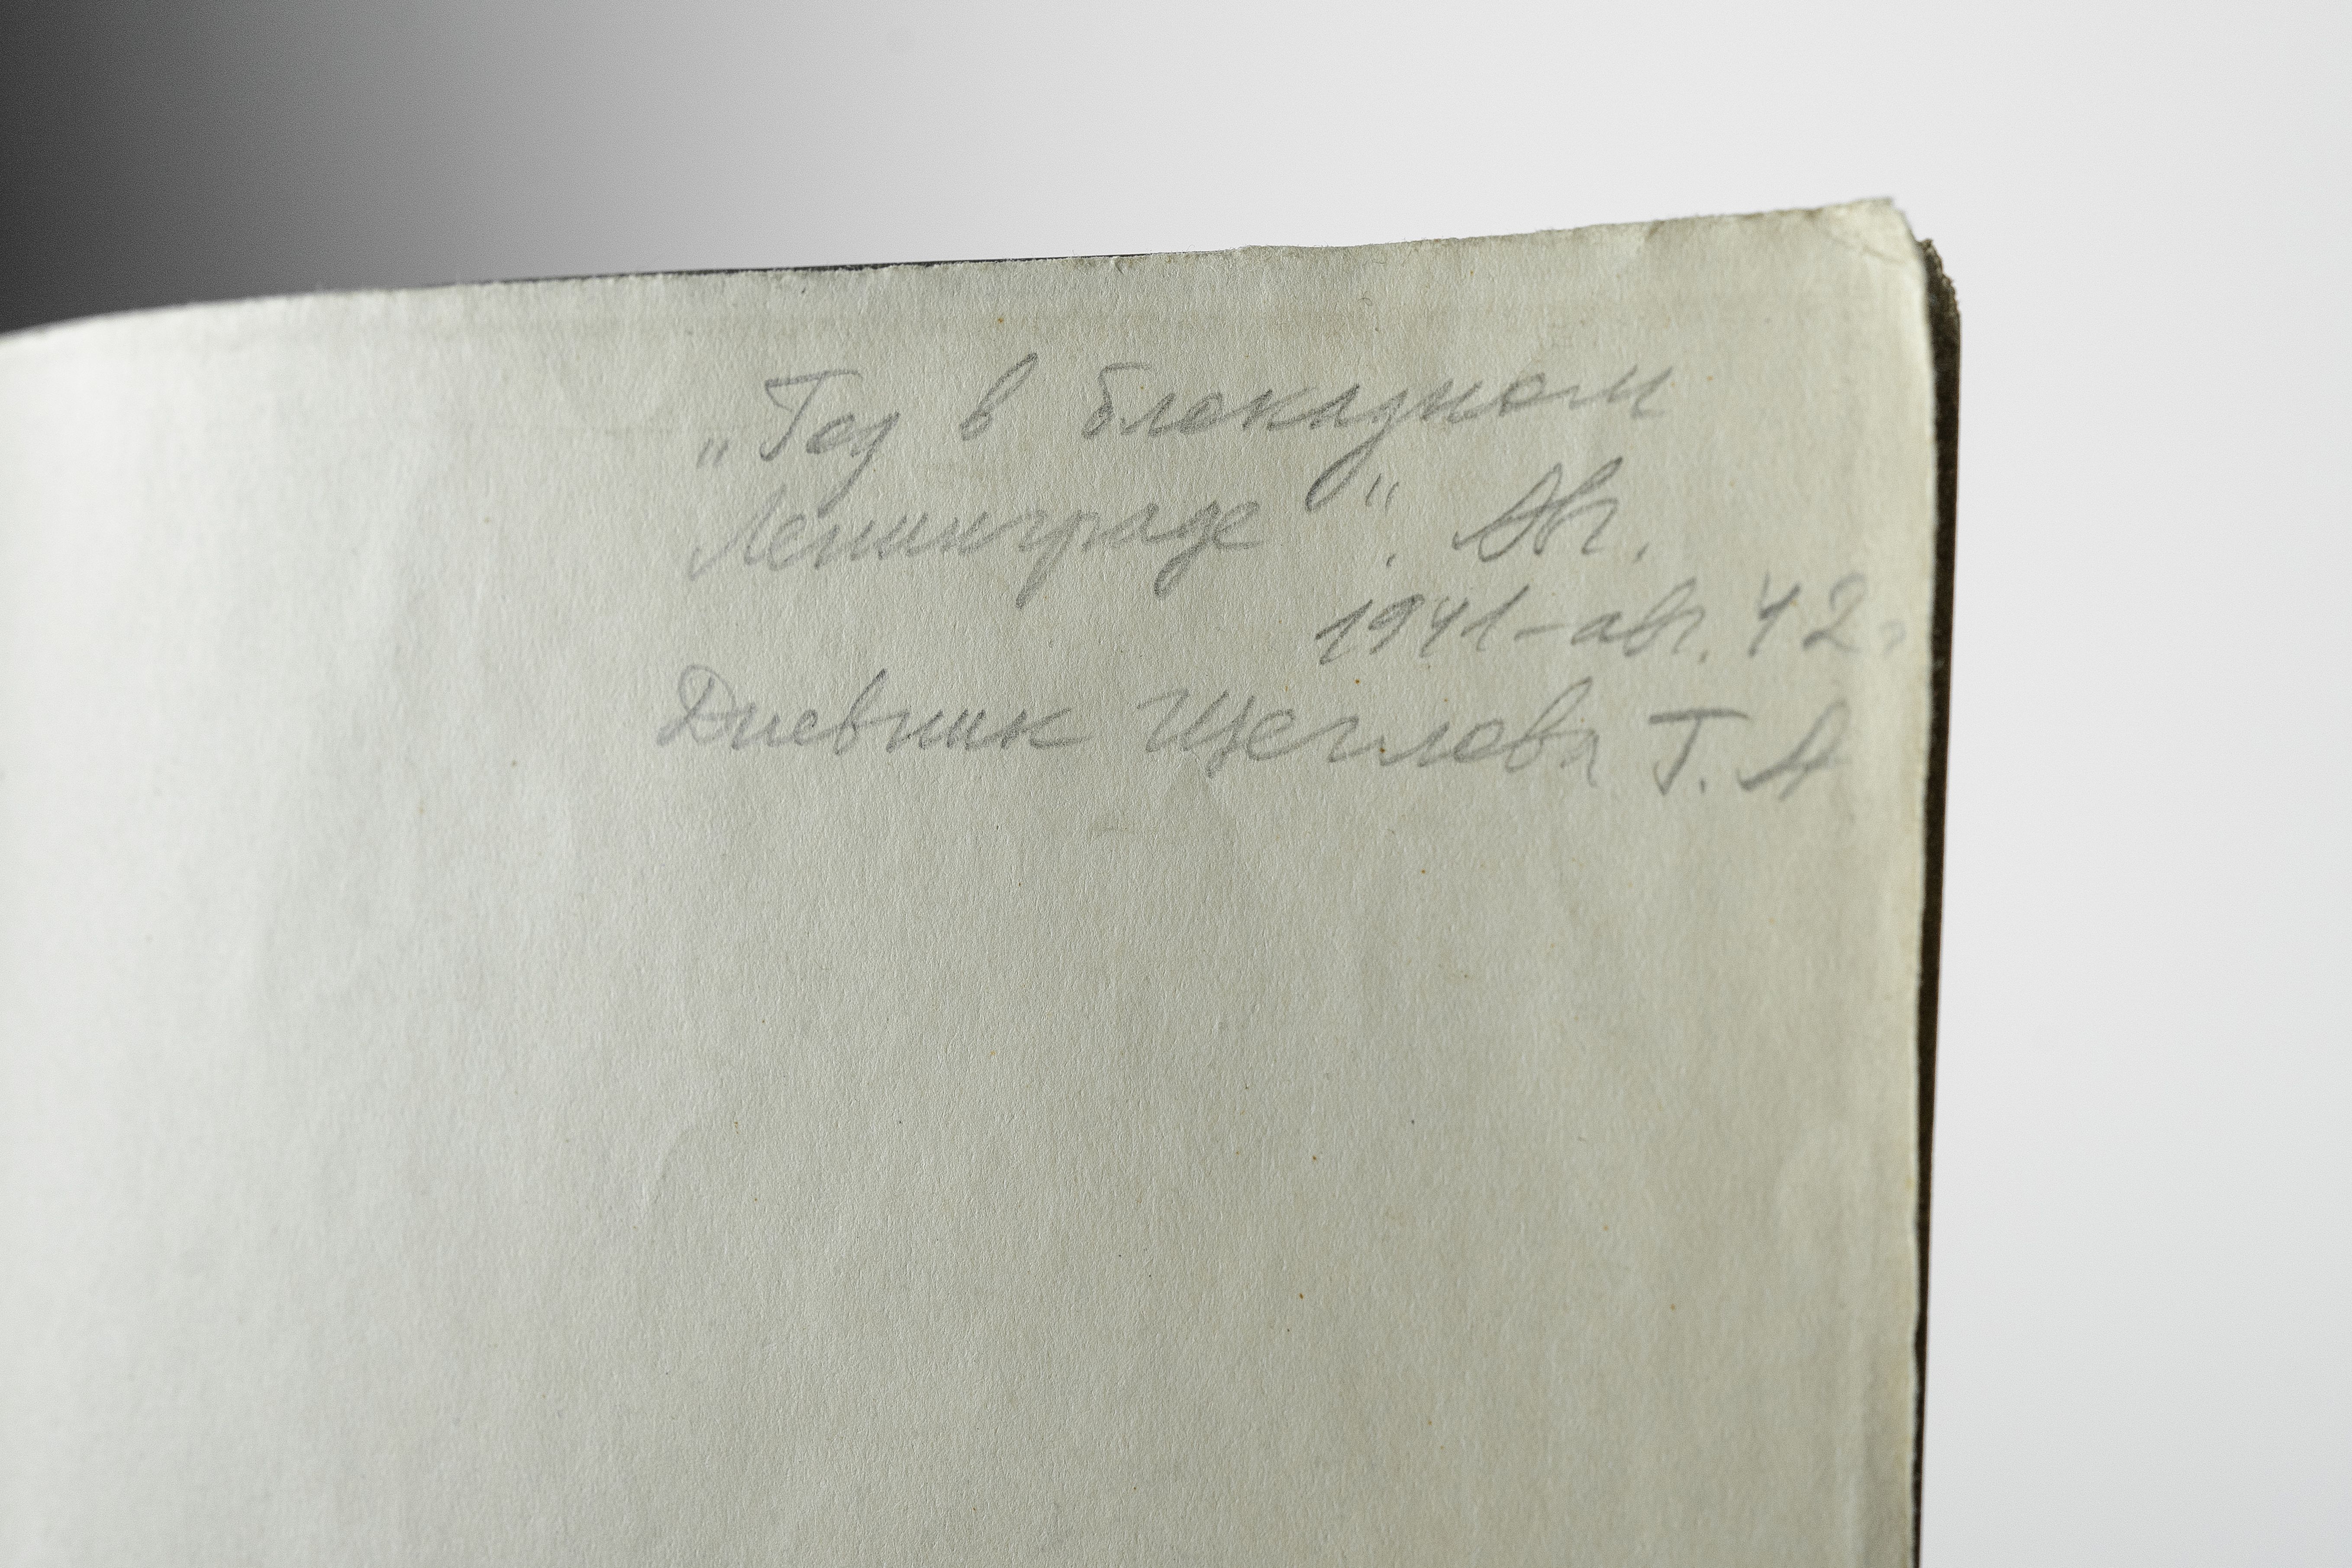 „Год в блокадном
Ленинграде". Авг.
1941-авг. 42г
Дневник Щеглова Г. А